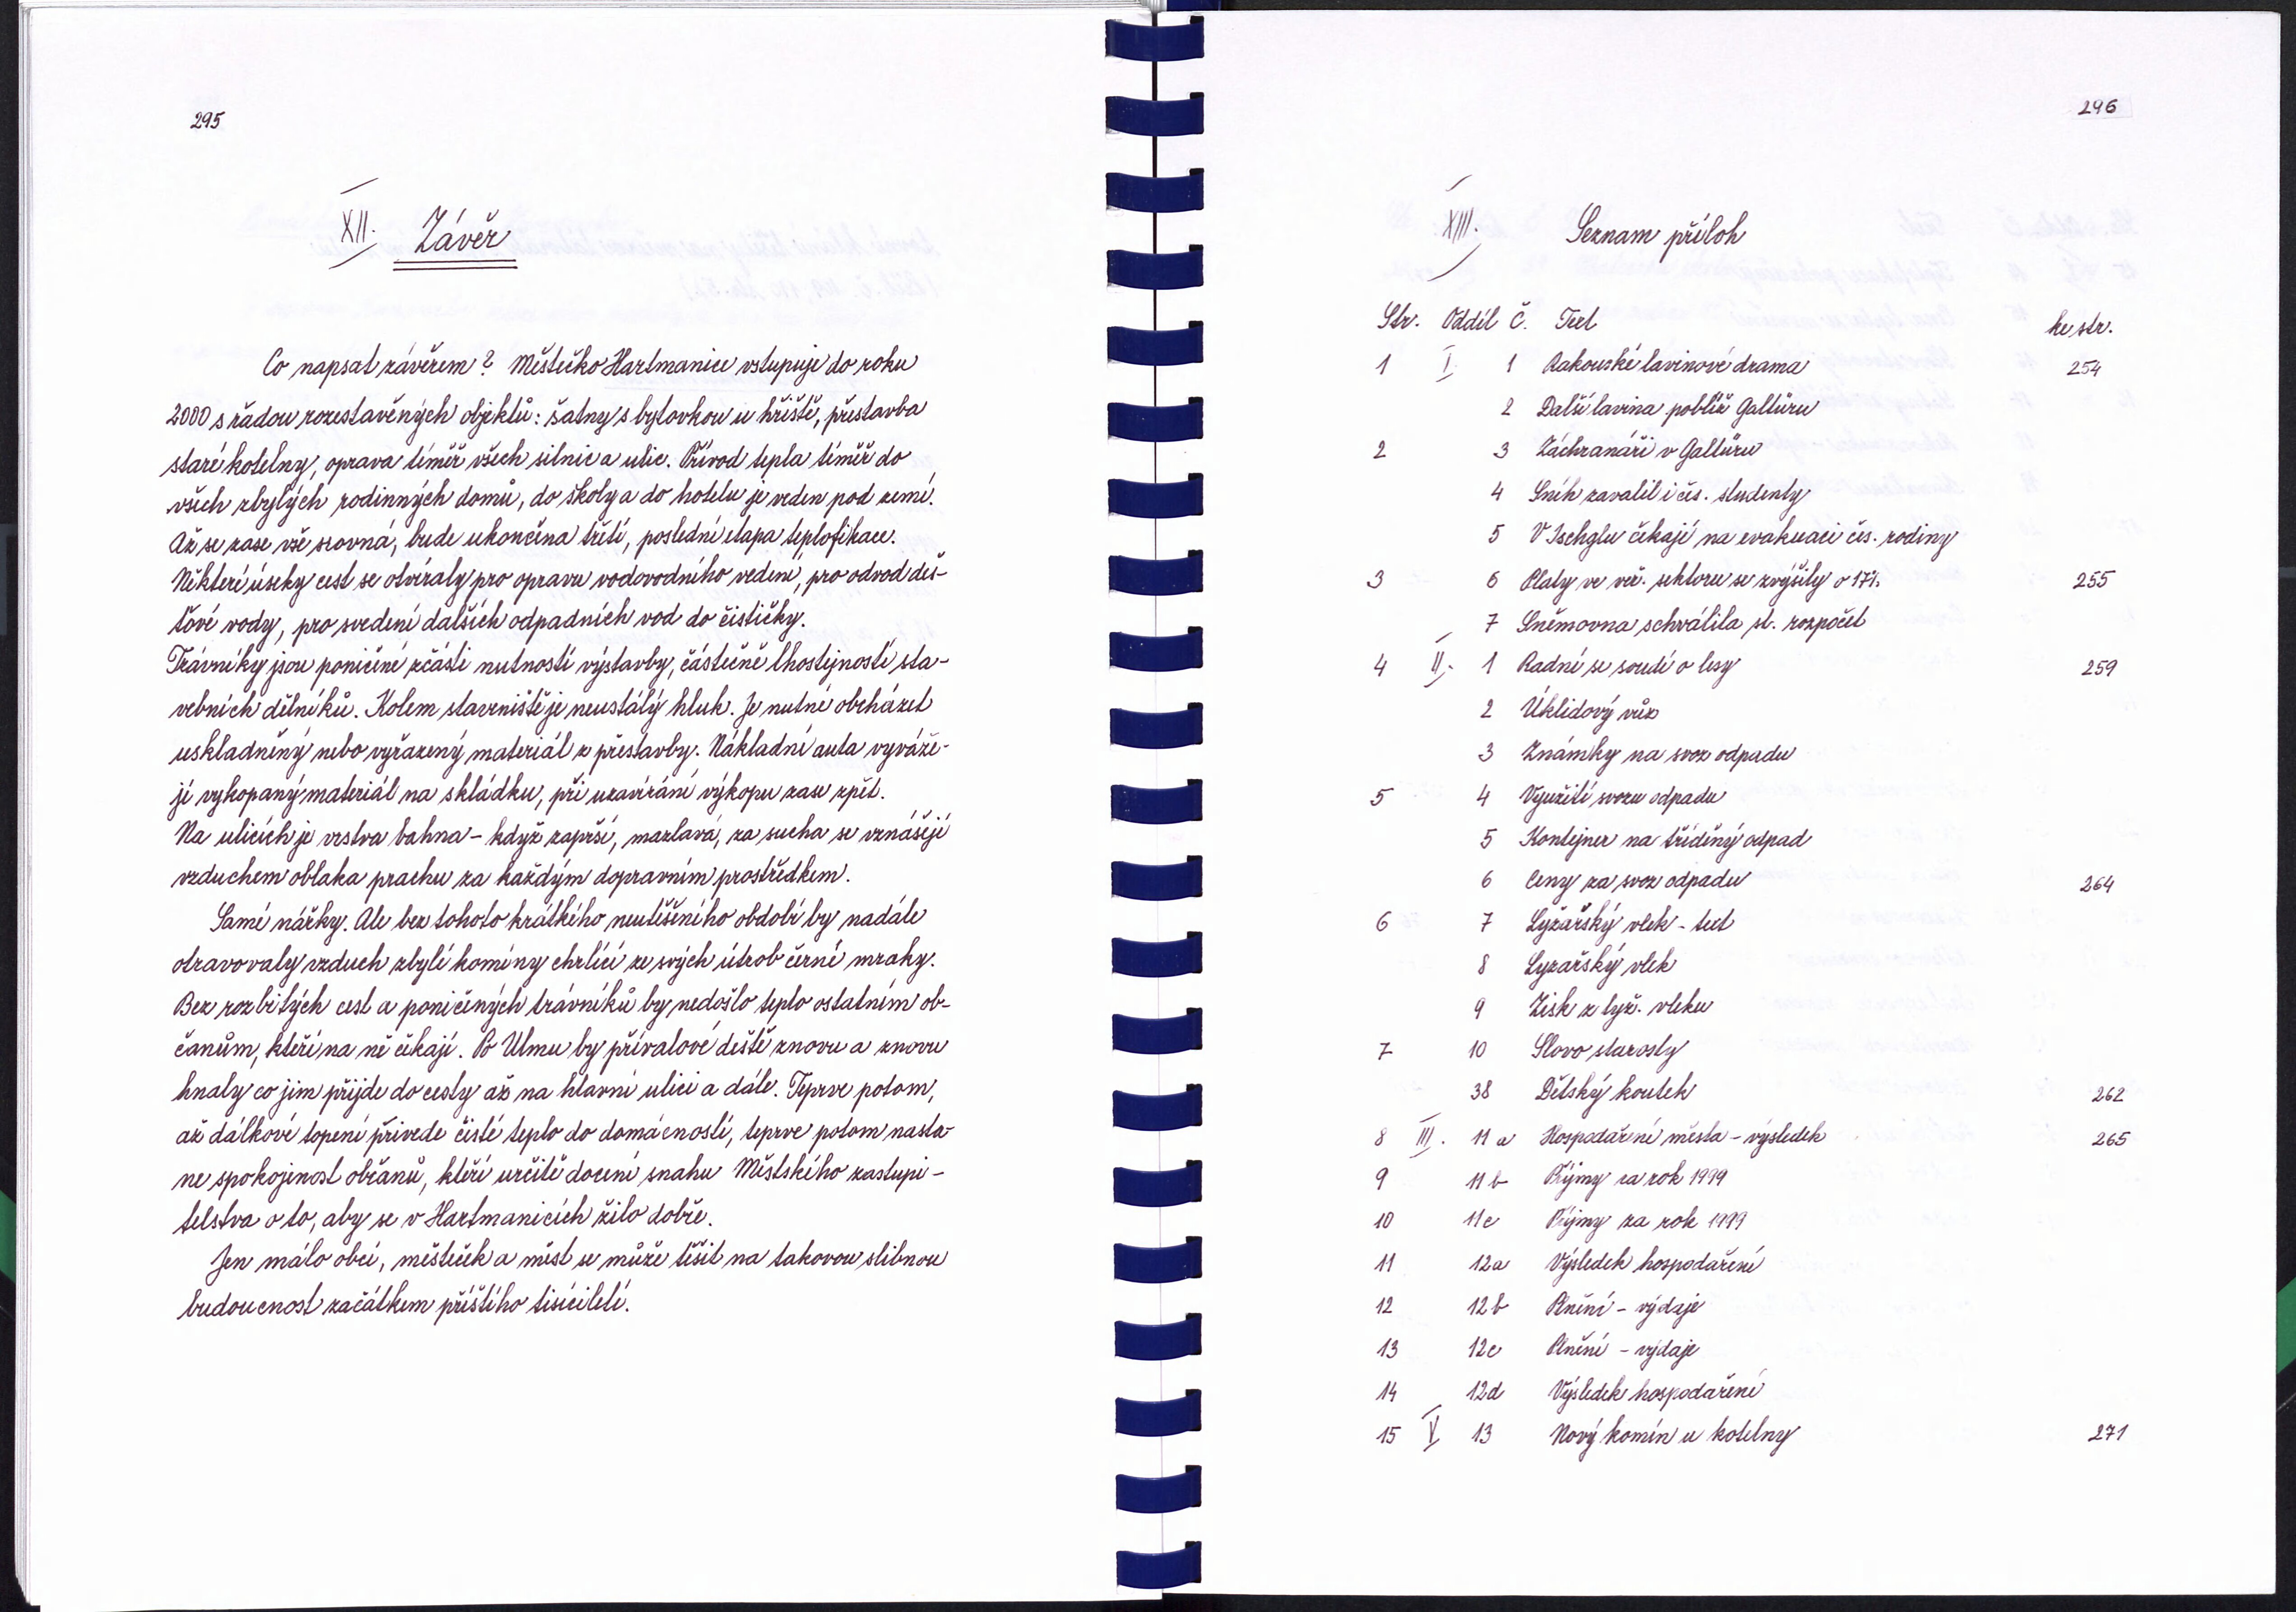 295
XII. Závěr
Co napsat závěrem? Městečko Hartmanice vstupuje do roku
2000 s řadou rozestavěných objektů: šatny s bytovkou u hřiště, přestavba
staré kotelny, oprava téměř všech silnic a ulic. Přívod tepla téměř do
všech zbylých rodinných domů, do školy a do hotelu je veden pod zemí.
Až se zase vše srovná, bude ukončena třetí, poslední etapa teplofikace.
Některé úseky cest se otvíraly pro opravu vodovodního vedení, pro odvod deš-
ťové vody, pro svedení dalších odpadních vod do čističky.
Trávníky jsou poničené zčásti nutností výstavby, částečně lhostejností sta-
vebních dělníků. Kolem staveniště je neustálý hluk. Je nutné obcházet
uskladněný nebo vyřazený materiál z přestavby. Nákladní auta vyváže-
jí vykopaný materiál na skládku, při uzavírání výkopu zase zpět.
Na ulicích je vrstva bahna - když zaprší, mazlavá, za sucha se vznášejí
vzduchem oblaka prachu za každým dopravním prostředkem.
Samé nářky. Ale bez tohoto krátkého neutěšeného období by nadále
otravovaly vzduch zbylé komíny chrlící ze svých útrob černé mraky.
Bez rozbitých cest a poničených trávníků by nedošlo teplo ostatním ob-
čanům, kteří na ně čekají. Po Ulmu by přívalové deště znovu a znovu
hnaly co jim přijde do cesty až na hlavní ulici a dále. Teprve potom,
až dálkové topení přivede čisté teplo do domácností, teprve potom nasta-
ne spokojenost občanů, kteří určitě docení snahu Městského zastupi-
telstva o to, aby se v Hartmanicích žilo dobře.
Jen málo obcí, městeček a měst se může těšit na takovou slibnou
budoucnost začátkem příštího tisíciletí.
296
XIII. Seznam příloh
Str. Oddíl Č. Text ke str.
1 I. 1 Rakouské lavinové drama 254
2 Další lavina poblíž Galtüru
2 3 Záchranáři v Galtüru
4 Sníh zavalil i čes. studenty
5 V Ischglu čekají na evakuaci čes. rodiny
3 6 Platy ve veř. sektoru se zvýšily o 17%. 255
7 Sněmovna schválila st. rozpočet
4 II. 1 Radní se soudí o lesy 259
2 Úklidový vůz
3 Známky na svoz odpadu
5 4 Využití svozu odpadu
5 Kontejner na tříděný odpad
6 Ceny za svoz odpadu 264
6 7 Lyžařský vlek - text
8 Lyžařský vlek
9 Zisk z lyž. vleku
7 10 Slovo starosty
38 Dětský koutek 262
8 III. 11a Hospodaření města - výsledek 265
9 11b Příjmy za rok 1999
10 11c Příjmy za rok 1999
11 12a Výsledek hospodaření
12 12b Plnění - výdaje
13 12c Plnění - výdaje
14 12d Výsledek hospodaření
15 V. 13 Nový komín u kotelny 271